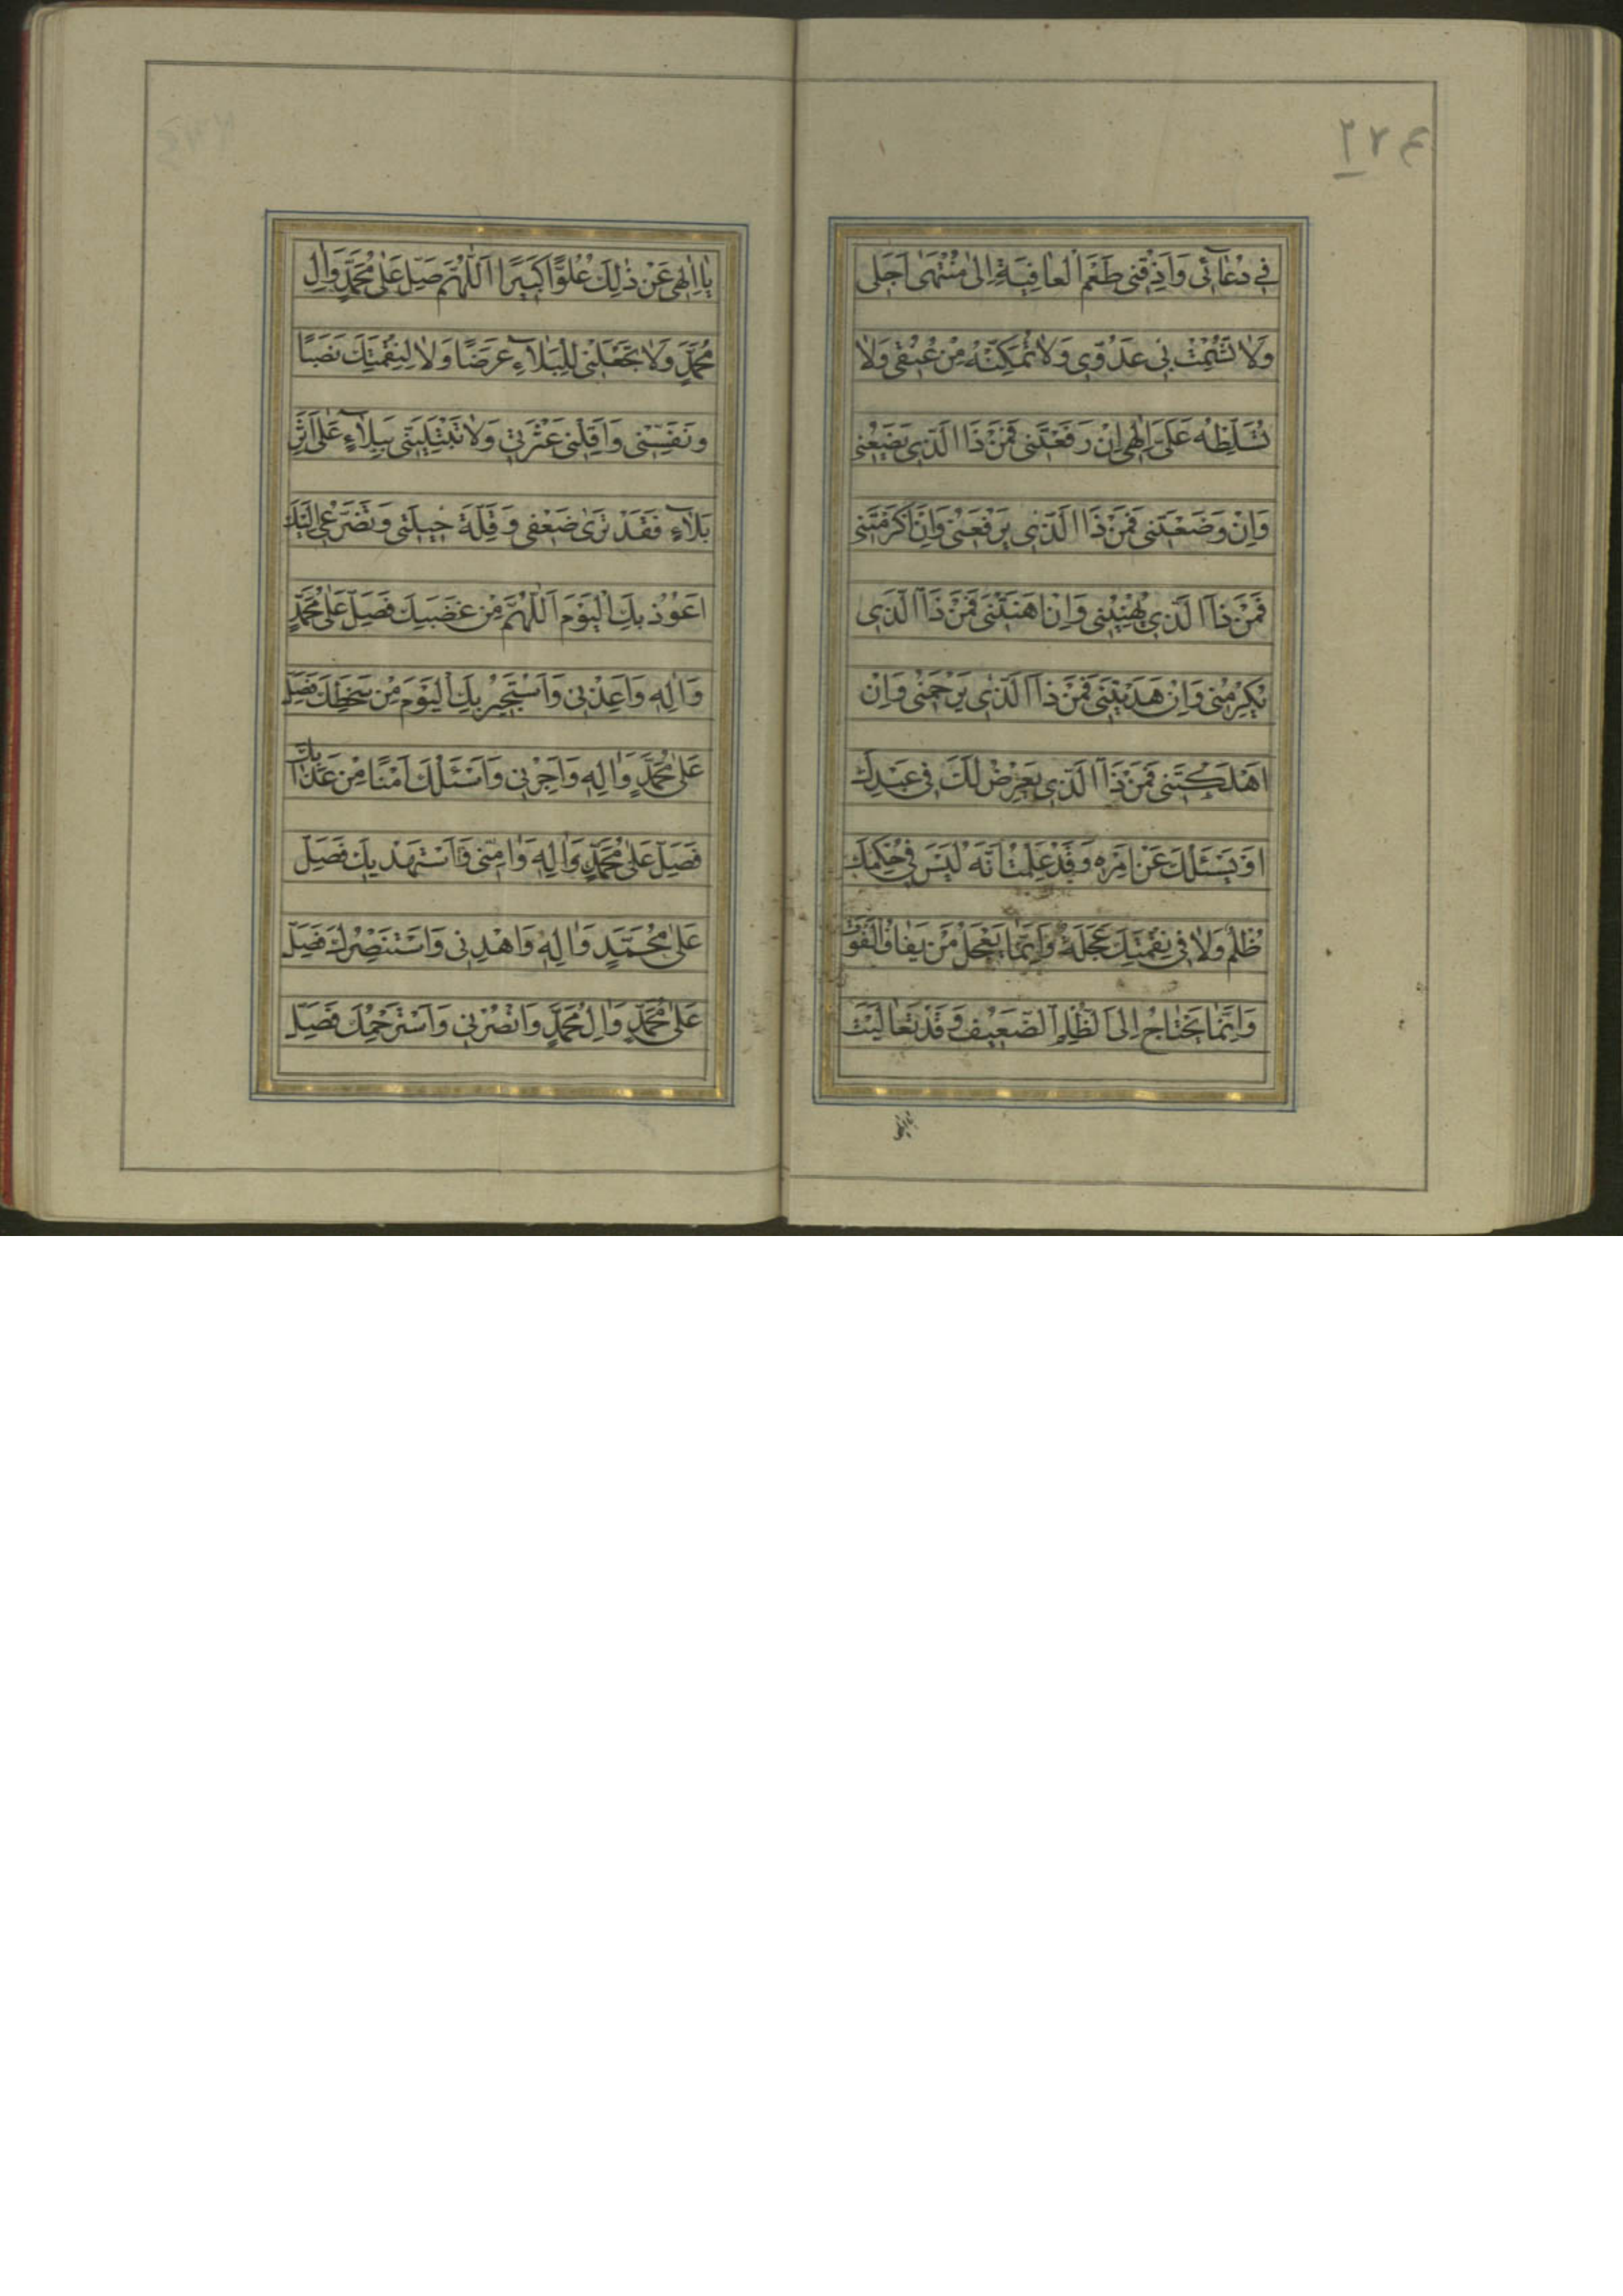 ٢٢٤
في دُعٰائى وَاَذِقْنى طَعْمَ الْعٰافِيَةِ اِلىٰ مُنْتَهىٰ اَجَلى
وَلاٰ تُشْمِتْ بى عَدُوّى وَلاٰ تُمَكِنْهُ مِنْ عُنُقى وَلاٰ
تُسَلِّطْهُ عَلَىَّ اِلٰهى اِنْ رَفَعْتَنى فَمَنْ ذَا الَّذى يَضَعُنى
وَاِنْ وَضَعْتَنى فَمَنْ ذَا الَّذى يَرْفَعُنى وَاِنْ اَكْرَمْتَنى
فَمَنْ ذَا الَّذى يُهيٖنُنى وَاِنْ اَهَنْتَنى فَمَنْ ذَا الَّذى
يُكْرِمُنى وَاِنْ هَدَيْتَنى فَمَنْ ذَا الَّذى يَرْحَمُنى وَاِنْ
اَهْلَكْتَنى فَمَنْ ذَا الَّذى يَعْرِضُ لَكَ فى عَبْدِكَ
اَوْ يَسْئَلُكَ عَنْ اَمْرِهِ وَقَدْ عَلِمْتُ اَنَّهُ لَيْسَ فى حُكْمِكَ
ظُلْمٌ وَلاٰ فى نِقْمَتِكَ عَجَلَةٌ وَاِنَّمٰا يَعْجَلُ مَنْ يَخٰافُ الْفَوْتَ
وَاِنَّمٰا يَحْتٰاجُ اِلَى الظُّلْمِ الضَّعيٖفُ وَقَدْ تَعٰالَيْتَ
يٰا اِلٰهى
يٰا اِلٰهى عَنْ ذٰلِكَ عُلُوًّا كَبيٖرًا اَللّٰهُمَّ صَلِّ عَلىٰ مُحَمَّدٍ وَاٰلِ
مُحَمَّدٍ وَلاٰ تَجْعَلْنى لِلْبَلاٰءِ غَرَضًا وَلاٰ لِنِقْمَتِكَ نَصَبًا
وَنَفِّسْنى وَاَقِلْنى عَثْرَتى وَلاٰ تَبْتَلِيَنّى بِبَلاٰءٍ عَلىٰ اَثَرِ
بَلاٰءٍ فَقَدْ تَرىٰ ضَعْفى وَقِلَّةَ حيٖلَتى وَتَضَرُّعى اِلَيْكَ
اَعُوذُ بِكَ الْيَوْمَ اَللّٰهُمَّ مِنْ غَضَبِكَ فَصَلِّ عَلىٰ مُحَمَّدٍ
وَاٰلِهِ وَاَعِذْنى وَاَسْتَجيٖرُ بِكَ الْيَوْمَ مِنْ سَخَطِكَ فَصَلِّ
عَلىٰ مُحَمَّدٍ وَاٰلِهِ وَاَجِرْنى وَاَسْئَلُكَ اَمْنًا مِنْ عَذٰابِكَ
فَصَلِّ عَلىٰ مُحَمَّدٍ وَاٰلِهِ وَاٰمِنّى وَاَسْتَهْديٖكَ فَصَلِّ
عَلىٰ مُحَمَّدٍ وَاٰلِهِ وَاهْدِنى وَاَسْتَنْصِرُكَ فَصَلِّ
عَلىٰ مُحَمَّدٍ وَاٰلِ مُحَمَّدٍ وَانْصُرْنى وَاَسْتَرْحِمُكَ فَصَلِّ